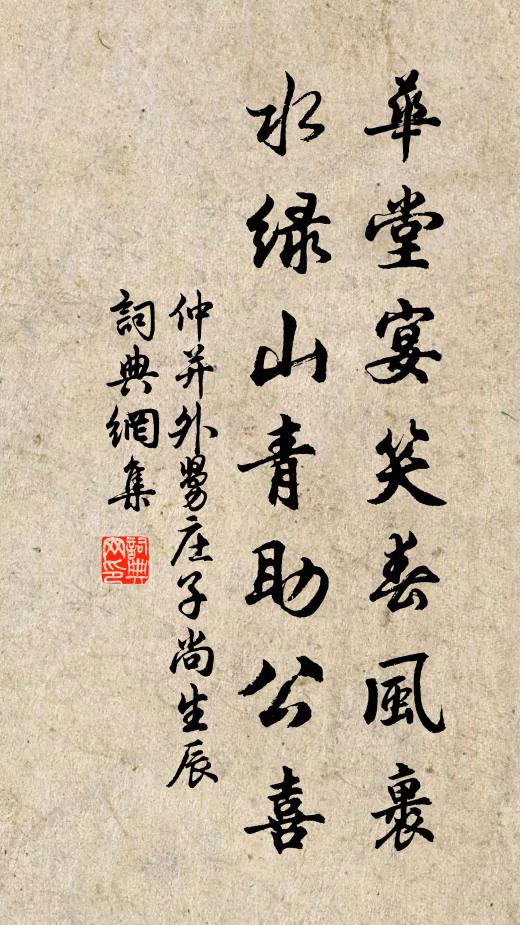 華堂宴笑春風裏
水绿山青助公喜
仲并外舅庄子尚生辰
詞典網集
詞典网印